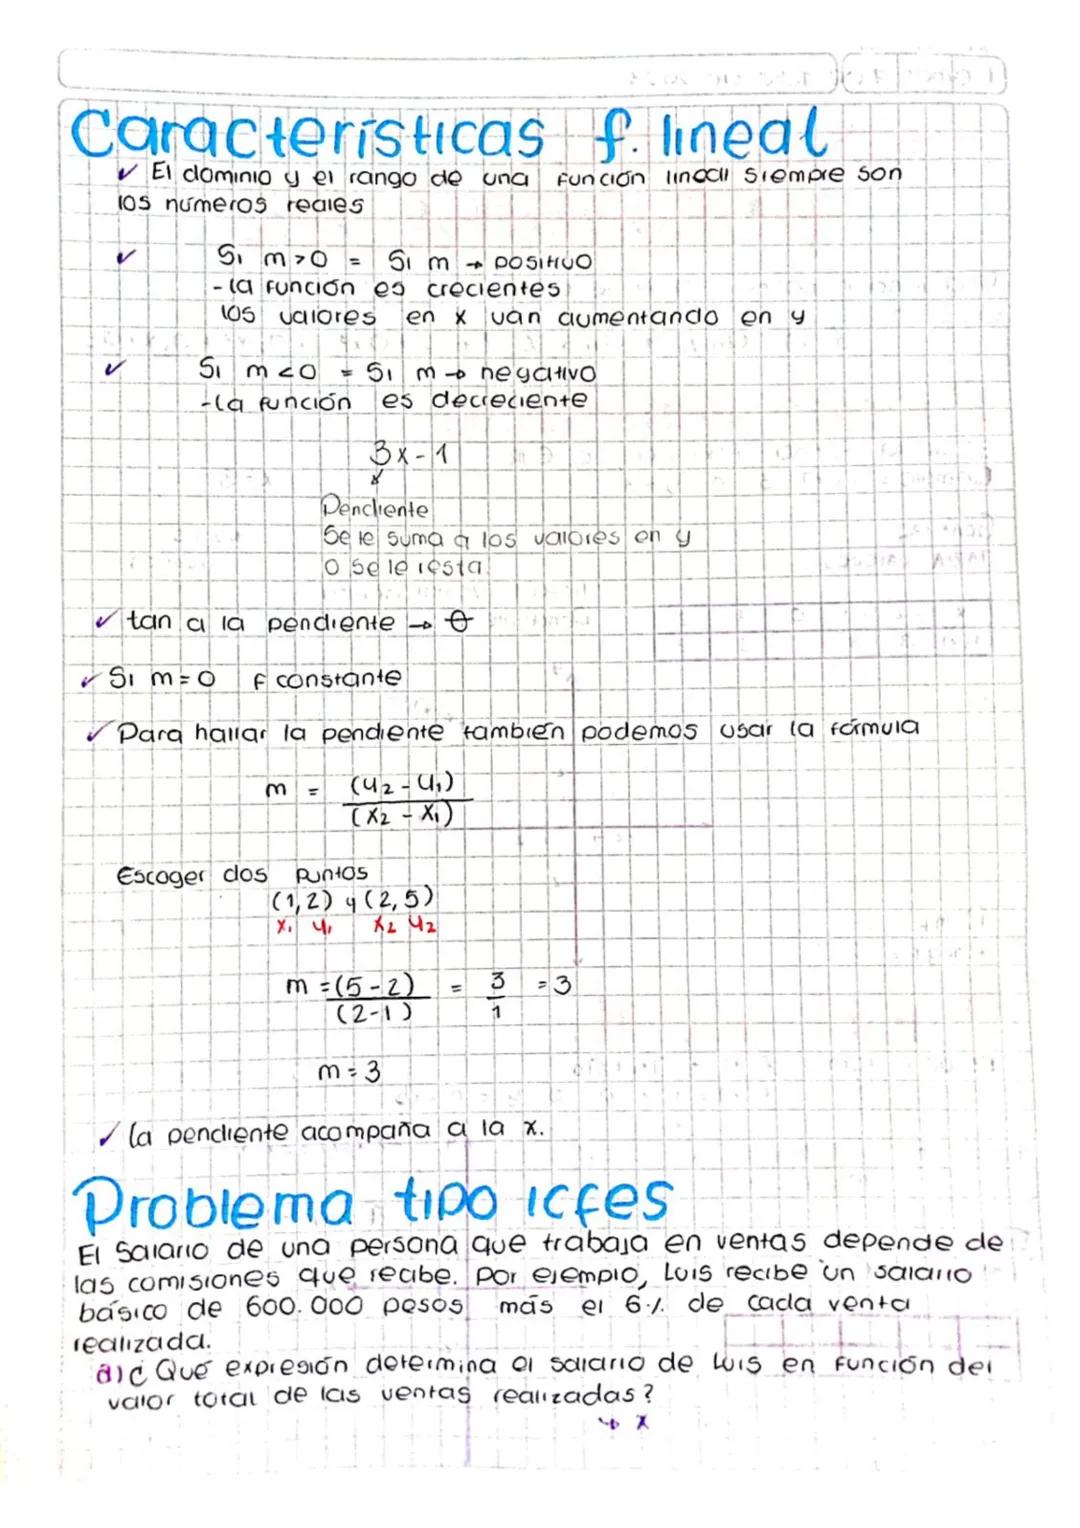 Características f. lineal
✓ El dominio y el rango de una función lineal siempre son
los números reales
✓ Si m > 0 = Si m → positivo
- la función es crecientes
los valores en x van aumentando en y
✓ Si m < 0 = Si m → negativo
- la función es decreciente
3x - 1
Pendiente
Se le suma a los valores en y
o se le resta
✓ tan a la pendiente → θ
✓ Si m = 0 f constante
✓ Para hallar la pendiente también podemos usar la fórmula
m = (y2 - y1)
(x2 - x1)
Escoger dos puntos
(1,2) y (2,5)
x1 y1 x2 y2
m = (5 - 2) = 3 = 3
(2-1) 1
m = 3
✓ la pendiente acompaña a la x.
Problema tipo icfes
El salario de una persona que trabaja en ventas depende de
las comisiones que recibe. Por ejemplo, Luis recibe un salario
básico de 600.000 pesos más el 6% de cada venta
realizada.
a) ¿Qué expresión determina el salario de Luis en función del
valor total de las ventas realizadas?
↳ x